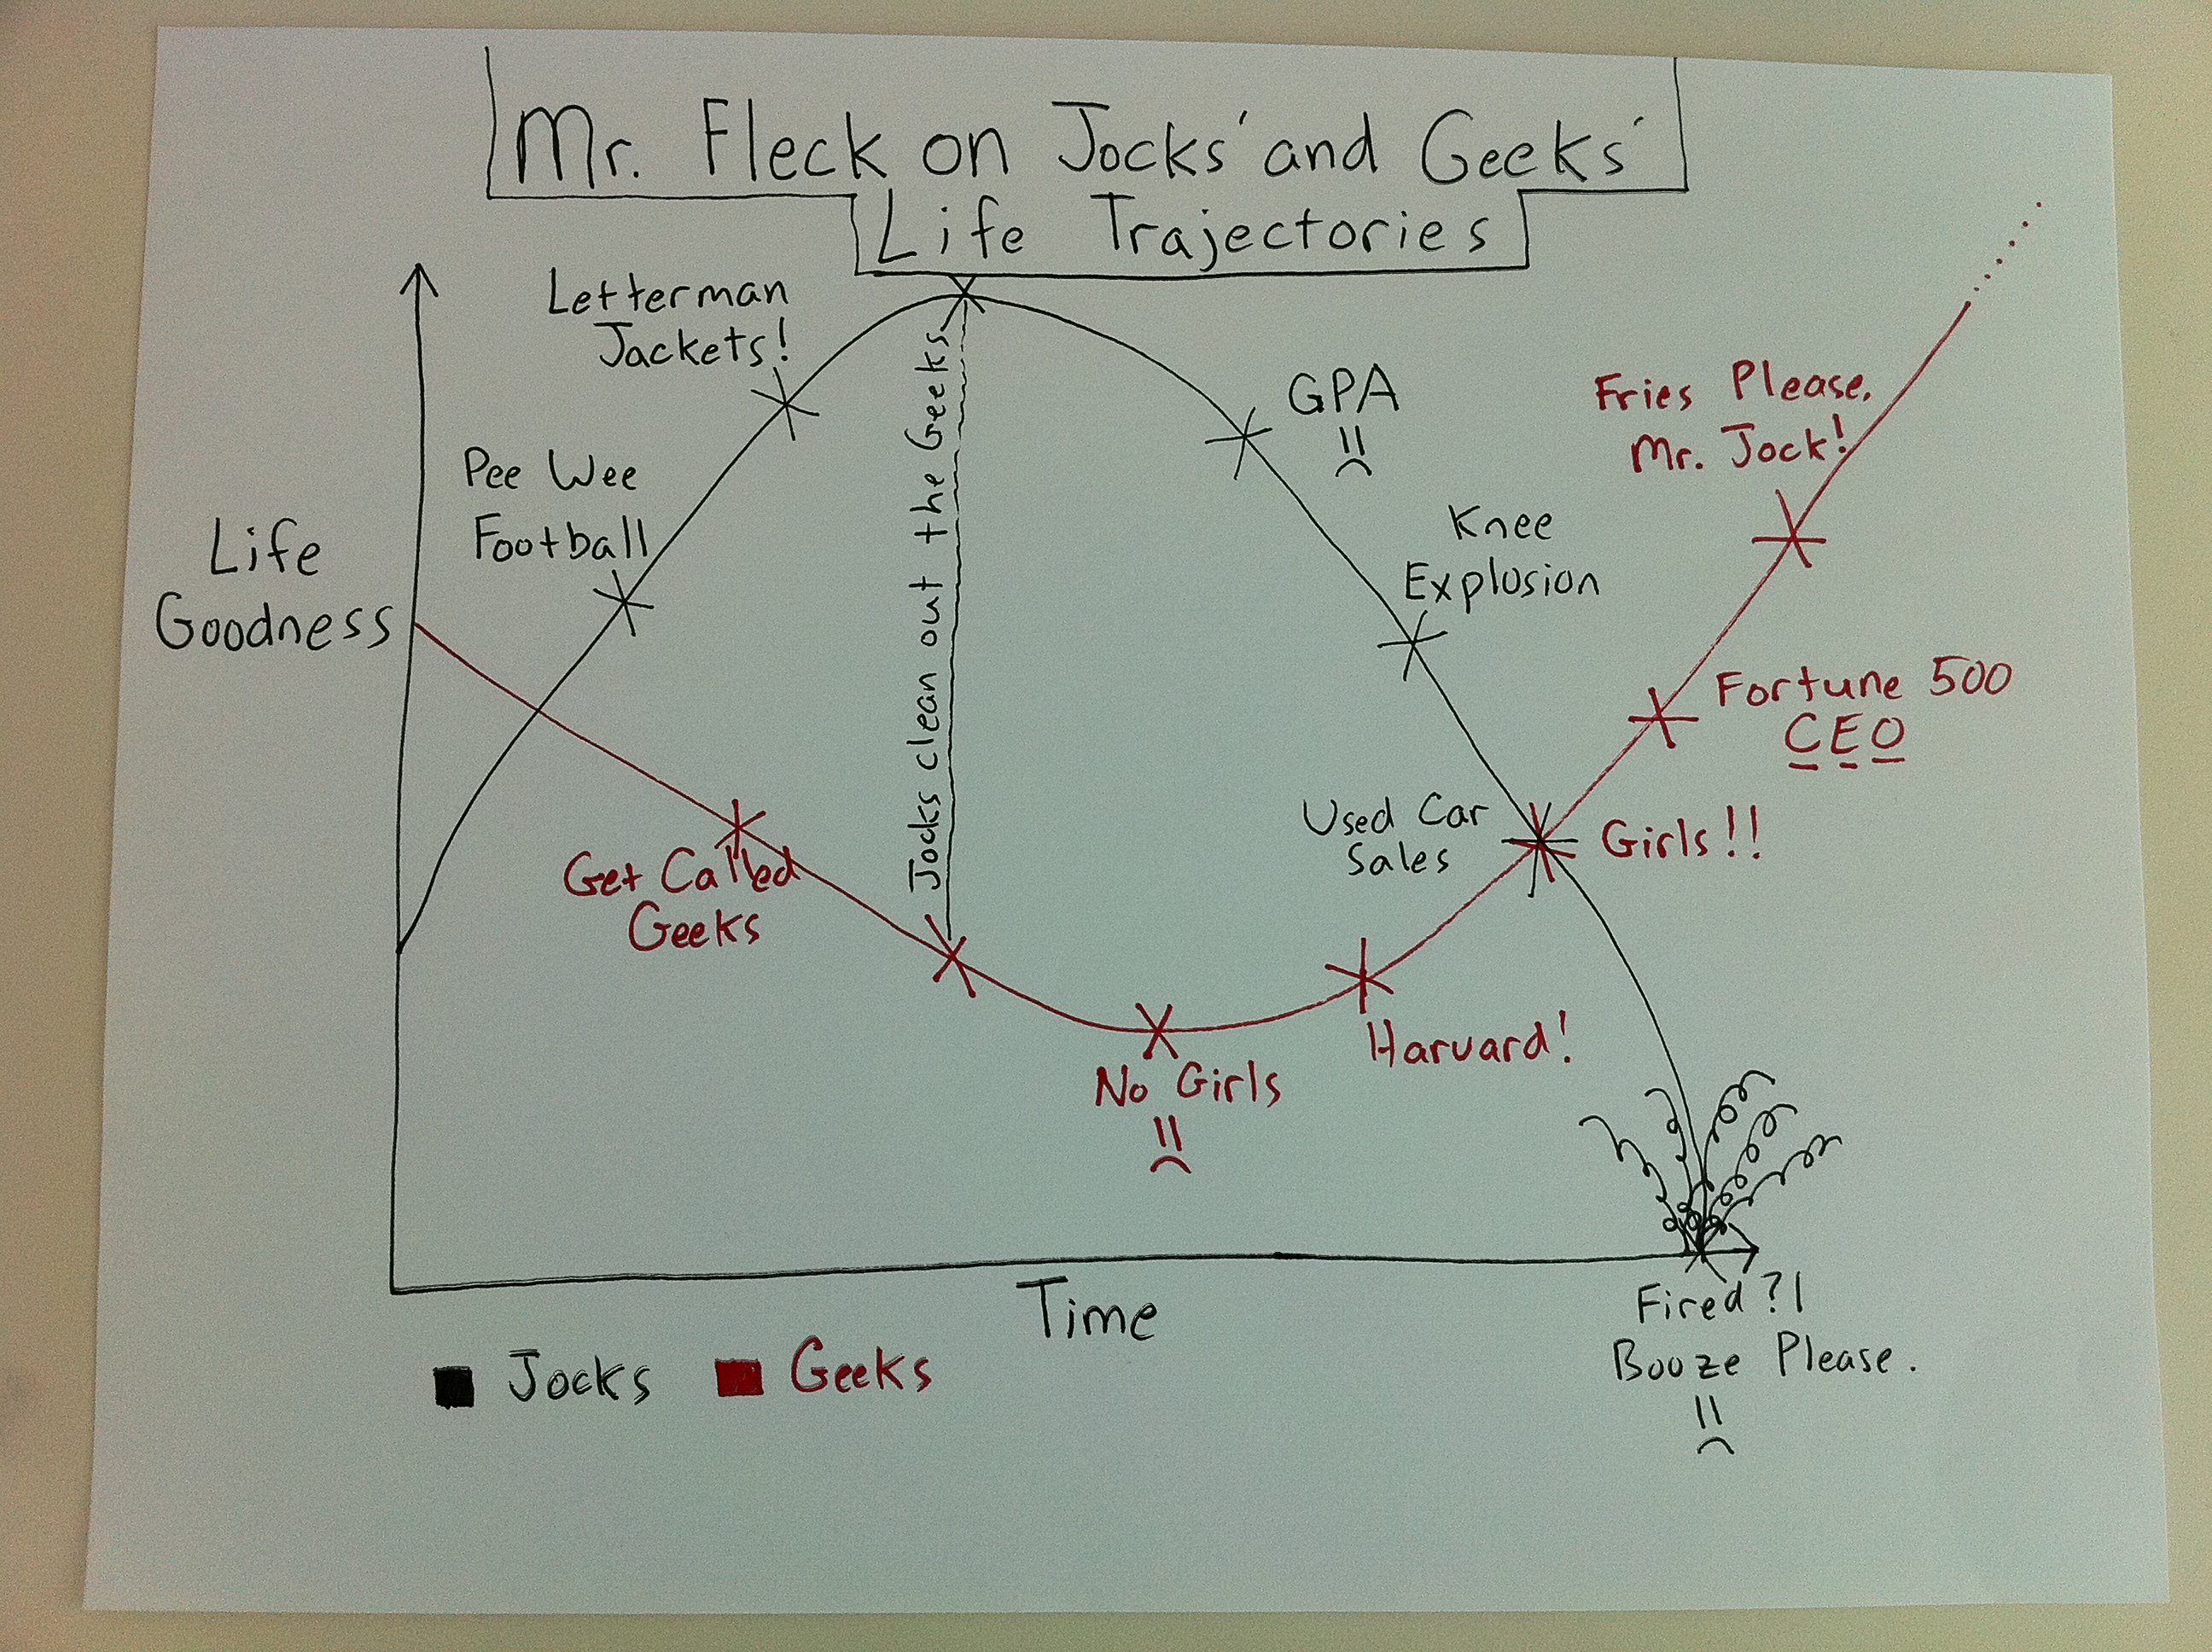 Mr. Fleck on Jocks' and Geeks'
Life Trajectories
Letterman
Jackets!
Pee Wee
Football
Life
Goodness
Jocks clean out the Geeks
GPA
Knee
Explosion
Fries Please,
Mr. Jock!
Fortune 500
CEO
Used Car
Sales
Girls!!
Get Called
Geeks
No Girls
Harvard!
Time
Fired?!
Booze Please.
Jocks
Geeks